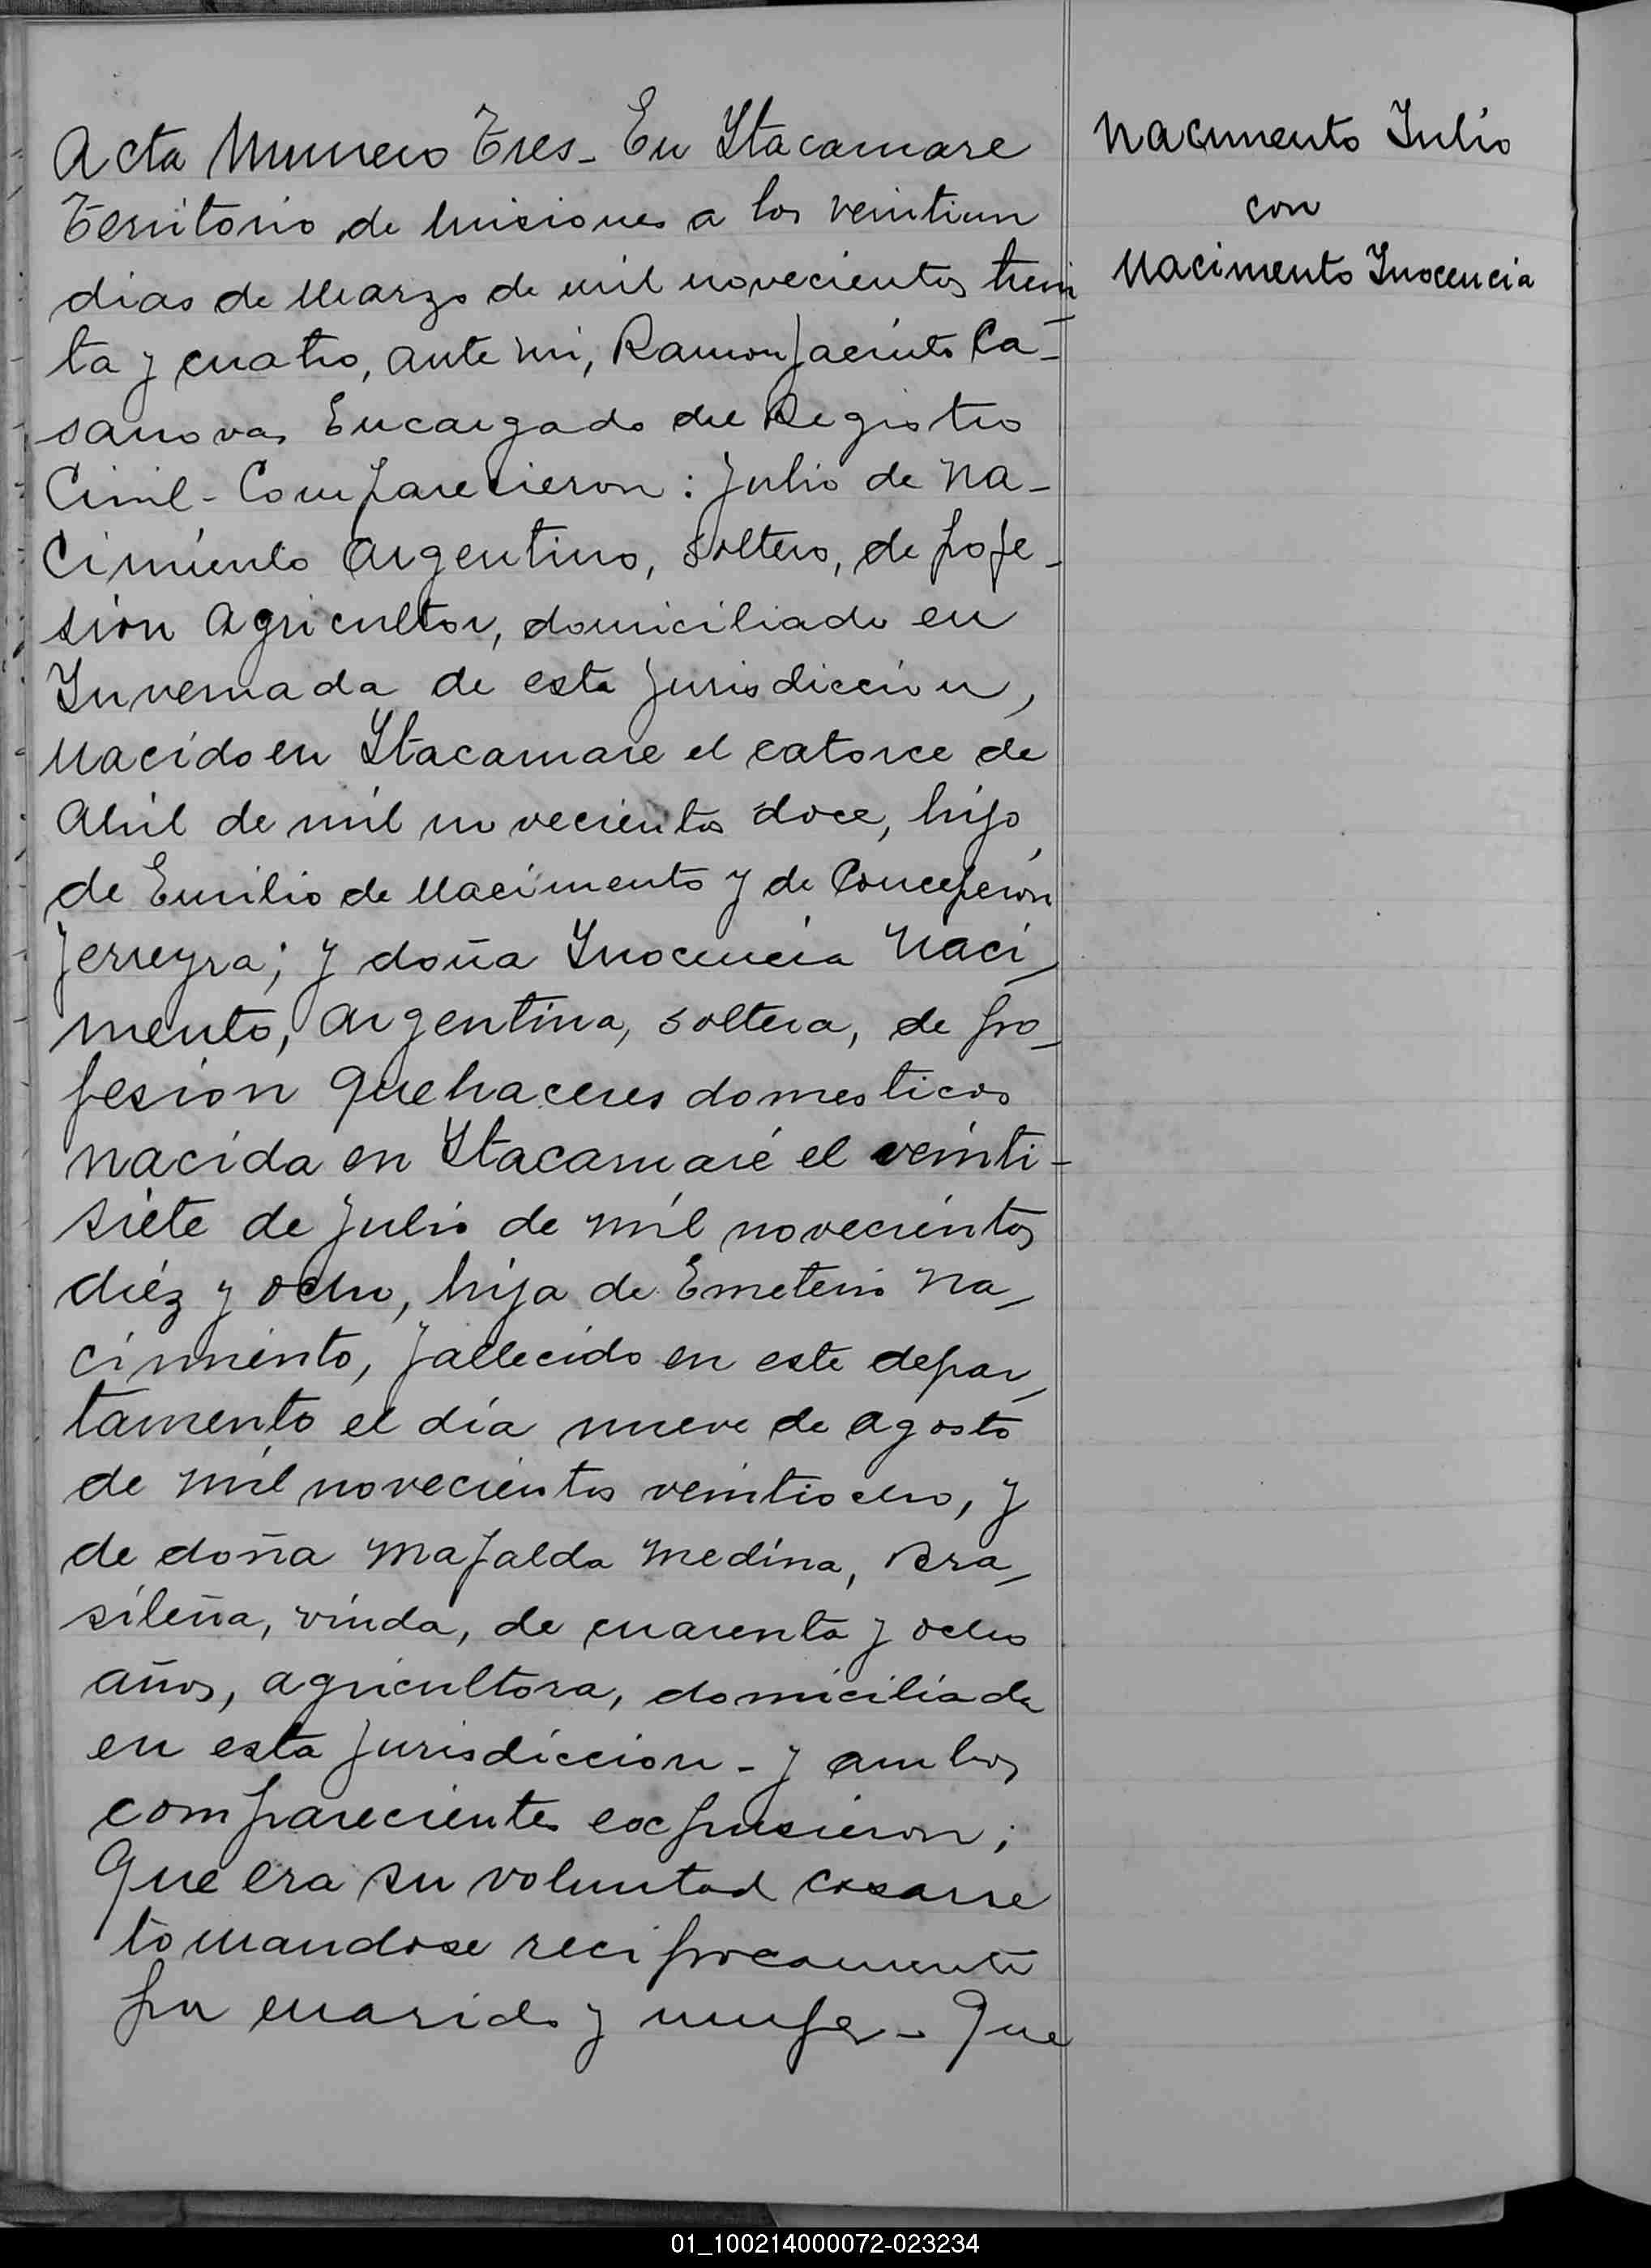 Acta Numero Tres_ En Itacaruare
Territorio de Misiones a los veintiun
dias de Marzo de mil novecientos trein
ta y cuatro, ante mi, Ramon Jacinto Ca_
sanova, Encargado del Registro
Civil - Comparecieron: Julio de Na_
cimiento Argentino, soltero, de profe_
sion Agricultor, domiciliado en
Invernada de esta jurisdiccion,
Nacido en Itacaruare el catorce de
Abril de mil novecientos doce, hijo
de Emilio de Nacimento y de Concepción
Ferreyra; y doña Inocencia Naci_
mento, Argentina, soltera, de pro_
fesion Quehaceres domesticos
nacida en Itacaruaré el veinti-
siete de Julio de mil novecientos
diéz y ocho, hija de Emeterio Na_
cimiento, fallecido en este depar_
tamento el día nueve de agosto
de mil novecientos veintiocho, y
de doña Mafalda Medina, Bra_
sileña, viuda, de cuarenta y ocho
años, agricultora, domiciliada
en esta jurisdiccion - y ambos
comparecientes expusieron;
Que era su voluntad casarse
tomandose reciprocamente
por marido y mujer - Que
Nacimento Julio
con
Nacimento Inocencia
01_100214000072-023234